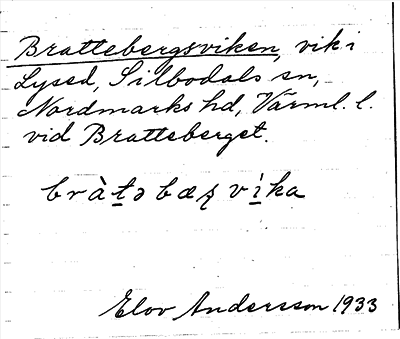 Brattebergsviken, vik i
Lysed, Silbodals sn,
Nordmarks hd, Värml. l.
vid Bratteberget.
Elov Andersson 1933